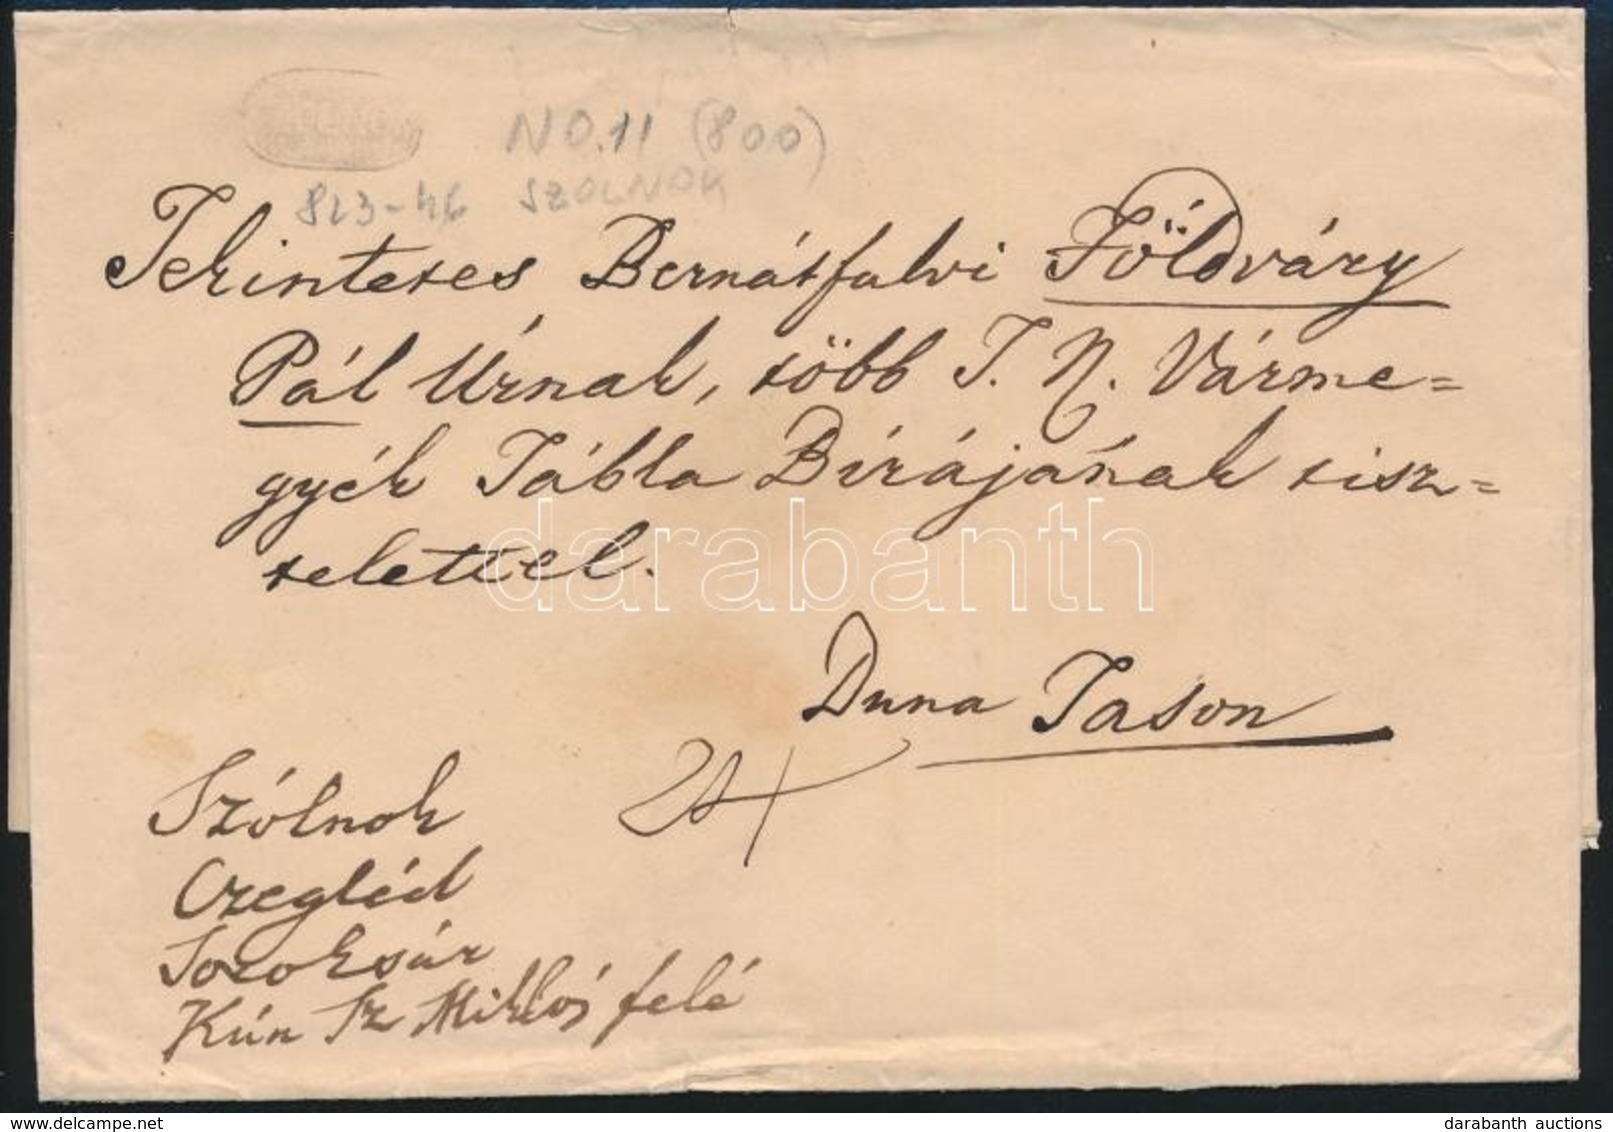 NO.11 (800)
823-46 SZOLNOK
Tekintetes Bernátfalvi Földváry
Pál Úrnak, több T. N. Várme=
gyék Tábla Bírájának tisz=
telettel.
darabanth
Duna Tason
Szólnok
Czegléd
Soroksár
Kún Sz Miklós felé
delcampe.net
darabanth auctions